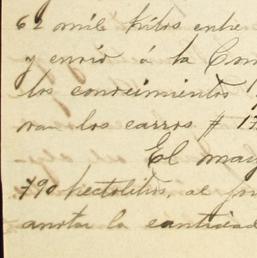 62 mil kilos entre
y envió á la Com
los conocimientos
ron los carros # 17
El may
790 hectolitros, al
anotar la cantidad